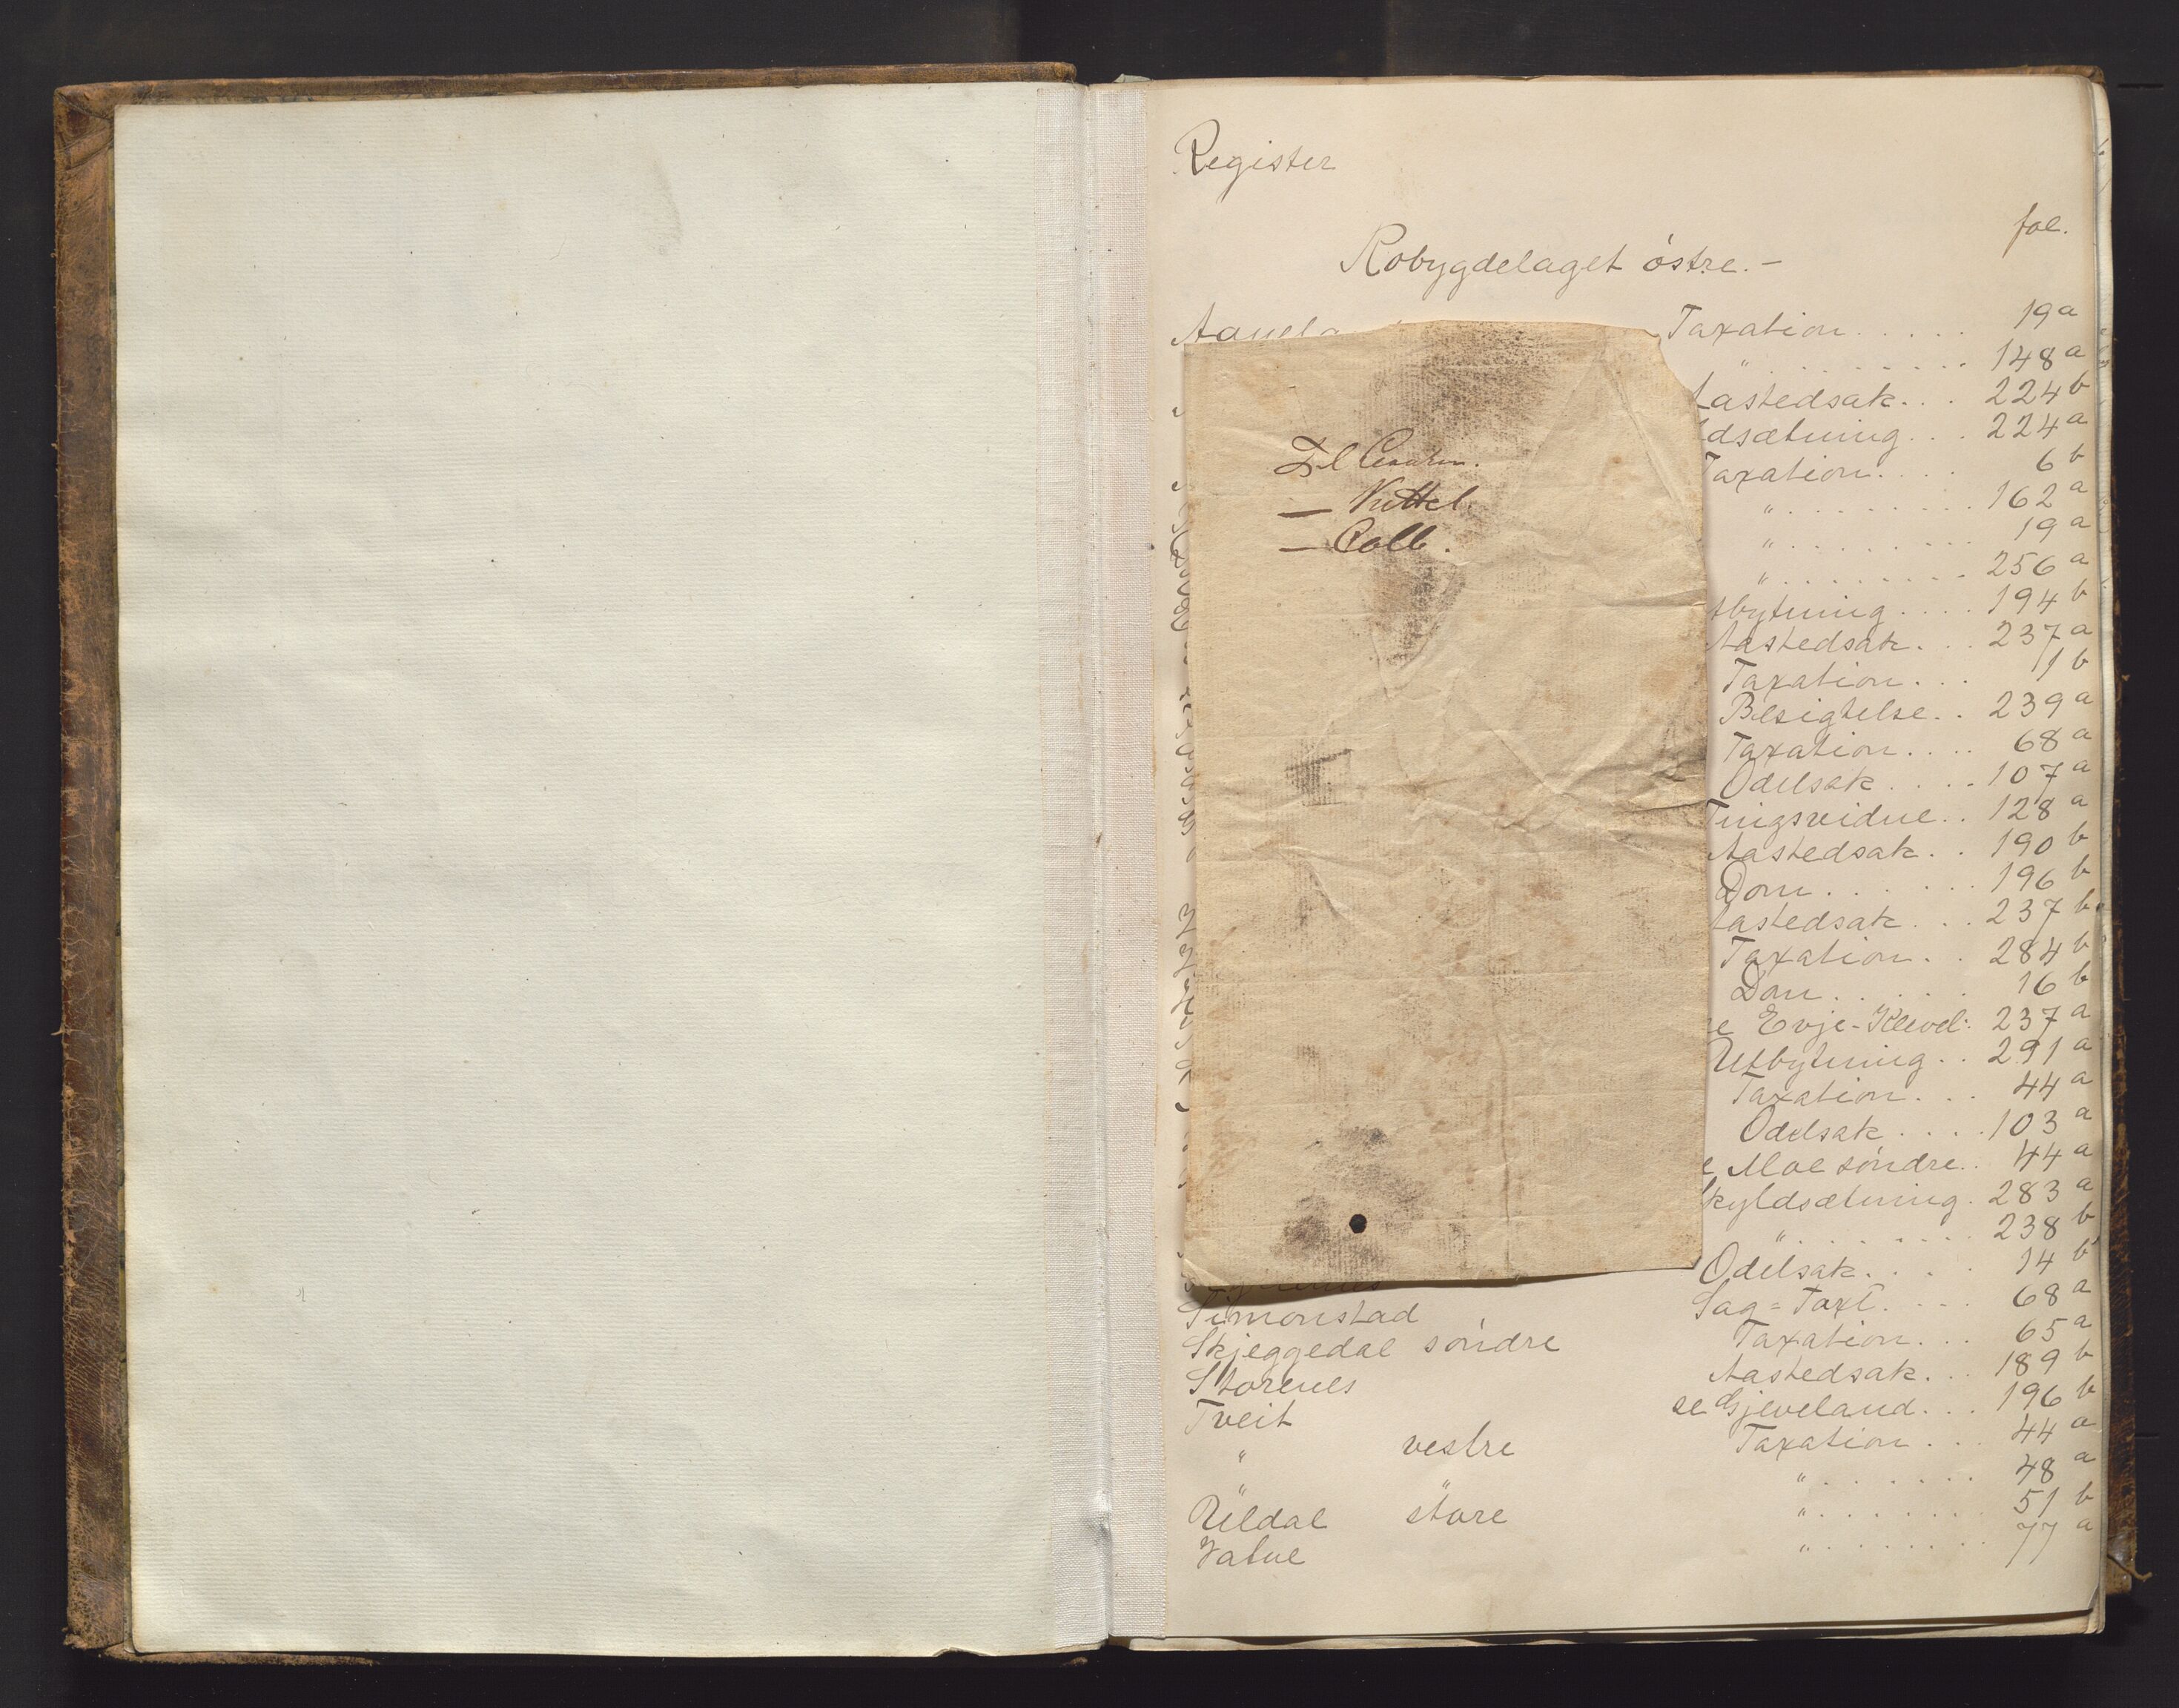 Register
fol.
Robygdelaget östre.-
Taxation..... 19 a
"......... 148 a
astedsak... 224 b
dsætning... 224 a
Taxation.... 6 b
"......... 162 a
"........ 19 a
"........ 256 a
tbytning.... 194 b
Aastedsak... 237 a
Taxation... 11 b
Besigtelse.. 239 a
Taxation.... 68 a
Odelsak.... 107 a
Tingsvidne.. 128 a
Aastedsak.. 190 b
Dom....... 196 b
astedsak... 237 b
Taxation.. 284 b
Dom...... 16 b
e Evje-Klevel. 237 a
Utbytning.. 291 a
Taxation... 44 a
Odelsak.... 103 a
e Moe söndre.. 44 a
kyldsætning. 283 a
"........ 238 b
Odelsak.... 14 b
Simonstad Sag=Taxt.... 68 a
Skjeggedal söndre Taxation... 65 a
Storenes Aastedsak... 189 b
Tveit se Gjeveland... 196 b
" vestre Taxation... 44 a
" " "....... 48 a
Uldal store "........ 51 b
Vatne "........ 77 a
— Kittel.
— Colb.